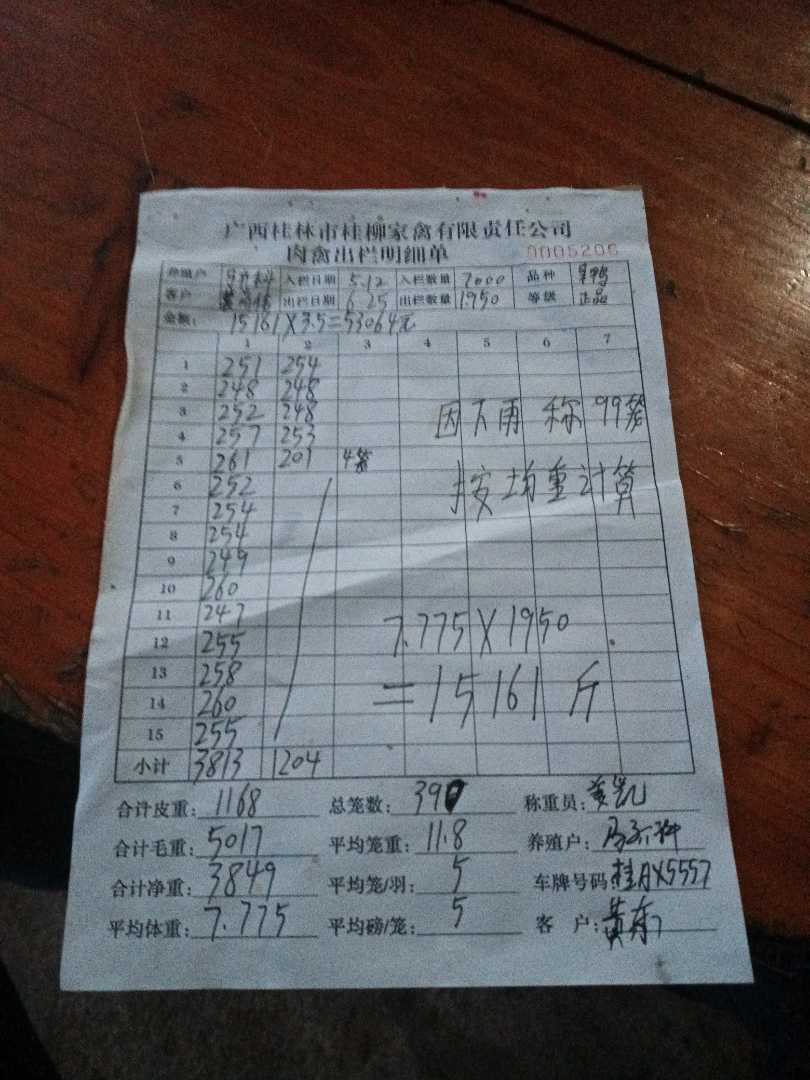 广西桂林市桂柳家禽有限责任公司
肉禽出栏明细单 0005206
养殖户 入栏日期 5.12 入栏数量 2000 品种
客户 出栏日期 6.25 出栏数量 1950 等级 正品
金额: 15161X3.5=53064元
1 2 3 4 5 6 7
1 251 254
2 248 248
3 252 248 因下雨 称99笼
4 257 253
5 261 201 4笼
6 252 按均重计算
7 254
8 254
9 249
10 260
11 247
12 255 7.775X1950
13 258
14 260 =15161斤
15 255
小计 3813 1204
合计皮重: 1168 总笼数: 390 称重员:
合计毛重: 5017 平均笼重: 11.8 养殖户:
合计净重: 3849 平均笼/羽: 5 车牌号码 桂AX5557
平均体重: 7.775 平均磅/笼: 5 客 户: